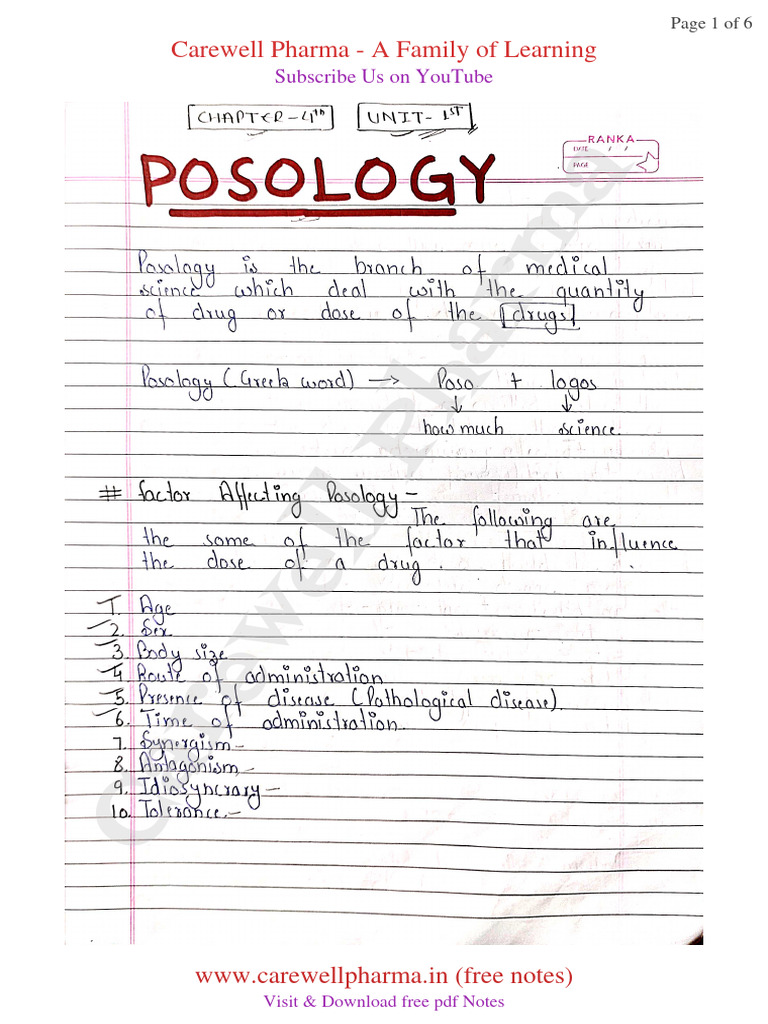 Page 1 of 6
Carewell Pharma - A Family of Learning
Subscribe Us on YouTube
CHAPTER-4th UNIT-1st
RANKA
DATE / /
PAGE
POSOLOGY
Posology is the branch of medical
science which deal with the quantity
of drug or dose of the [drugs]
Posology (Greek word) → Poso + logos
↓ ↓
how much science.
# factor Affecting Posology-
The following are
the some of the factor that influence
the dose of a drug.
1. Age
2. Sex
3. Body size
4. Route of administration
5. Presence of disease (Pathological disease)
6. Time of administration
7. Synergism-
8. Antagonism-
9. Idiosyncrary-
10. Tolerance.-
Carewell Pharma
www.carewellpharma.in (free notes)
Visit & Download free pdf Notes